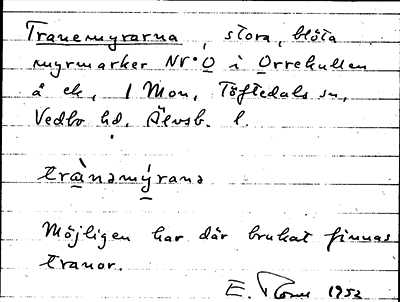 Tranemyrarna, stora, blöta
myrmarker NV·O i Orrekullen
å ek, 1 Mon, Töftedals sn,
Vedbo hd, Älvsb. l.
trànəmýrana
Möjligen har där brukat finnas
tranor.
E. 1952